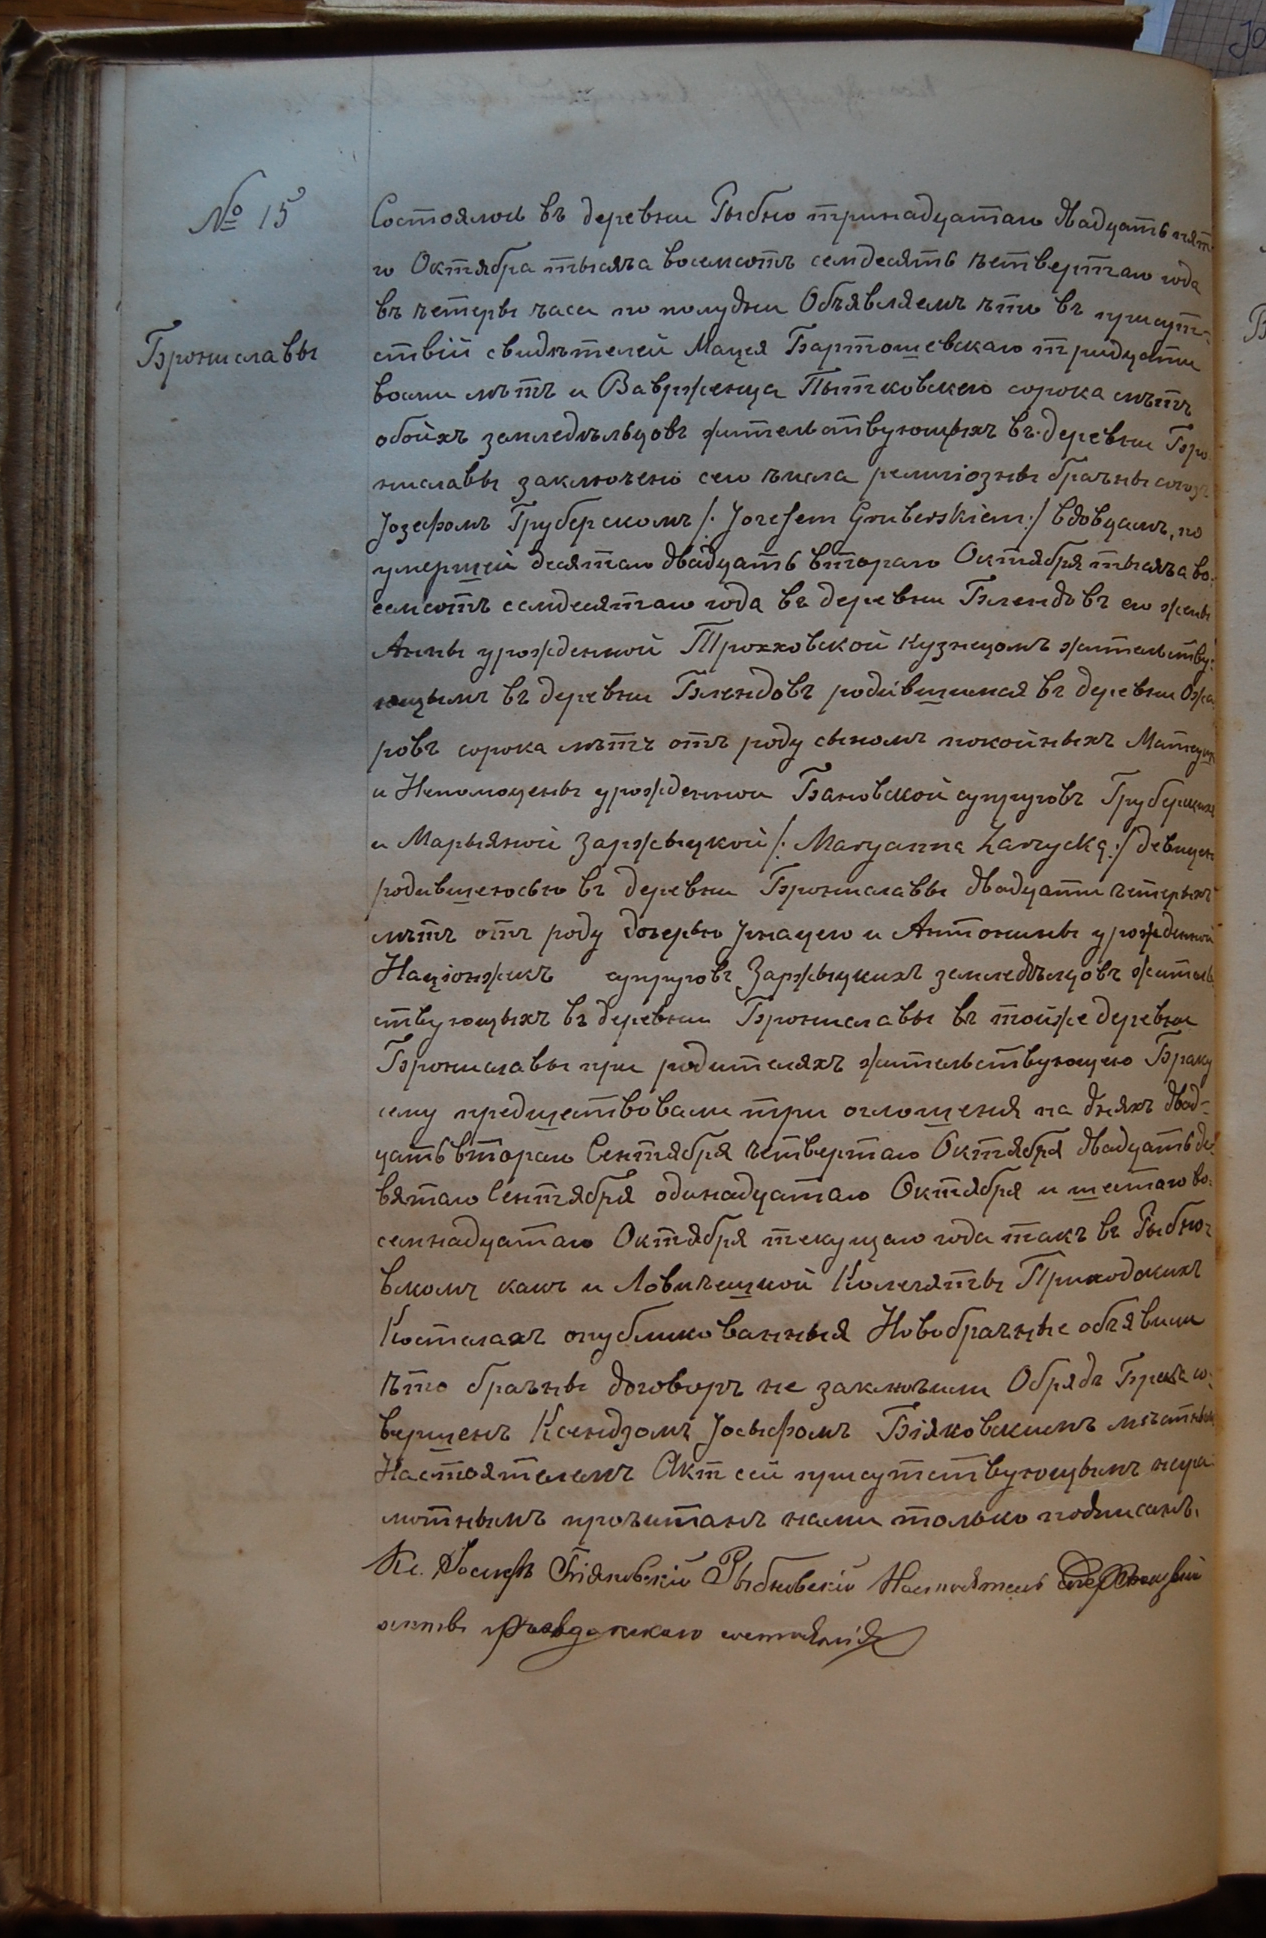 № 15
Брониславы
Состоялось въ деревни Рыбно тринадцатаго двадцать пята
го Октября тысяча восемсотъ семдесять четвертаго года
въ четеры часы по полудни Объявляемъ что въ присут-
ствіи свидѣтелей Мацея Бартошевскаго тридцати
восми лѣтъ и Вавржеица Пытковскаго сорока лѣтъ
обоихъ земледѣльцовъ жительствующыхъ въ деревни Бро
ниславы заключено сего числа религіозны брачны союзъ
Іозефомъ Груберскомъ /: Jozefem Gruberskiem :/ вдовцамъ, по
умершей десятаго двадцать втораго Октября тысяча во-
семсотъ семдесятаго года въ деревни Блендовъ его жены
Анны урожденной Трохховской кузнецомъ жительству-
ющымъ въ деревни Блендовъ родившимся въ деревни Ожа
ровъ сорока лѣтъ отъ роду сыномъ покойныхъ Матеуша
и Непомоцены урожденной Бановской супруговъ Груберскихъ
и Марьяной Заржыцкой /: Maryanną Zarzycką :/ девицею
родившеюсью въ деревни Брониславы двадцати четерыхъ
лѣтъ отъ роду дочерью Игнацего и Антонины урожденной
Націонжикъ супруговъ Заржыцкихъ земледѣлцовъ житель
ствующыхъ въ деревни Брониславы въ тойже деревни
Брониславы при родителяхъ жительствующею Браку
сему предшествовали три оглошеня на дняхъ двад-
цать втораго Сентября четвертаго Октября двадцать де-
вятаго Сентября одинадцатаго Октября и шестаго во-
семнадцатаго Октября текущаго года такъ въ Рыбно-
вскомъ какъ и Ловичешкой Колегяты Приходскихъ
Костелахъ опубликованныя Новобрачные объявили
что брачны договоръ не заключили Обрядъ Брака со-
вершенъ Ксендзомъ Іосыфомъ Біяковскимъ мѣстнымъ
Настоятелемъ Актъ сей присутствующымъ негра-
мотнымъ прочитанъ нами только подписанъ.
Кс. Іосифъ Біяковскій Рыбновскій Настоятель
акты гражданскаго состоянія